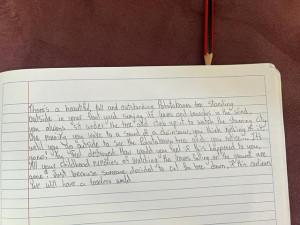 There's a beautiful, tall and outstanding Pohutukawa tree standing
outside in your front yard swaying it leaves and branches in the wind
you always sit under the tree and climb up it to watch the stunning city
One morning you wake to a sound of a chainsaw, you think nothing of it
until you go outside to see the Pohutukawa tree and you realise it's
gone! You feel destroyed. How would you feel if this happened to you,
All your childhood memories of watching the leaves falling on the ground are
gone! Just because someone decided to cut the tree down, if this continues
we will have a treeless world